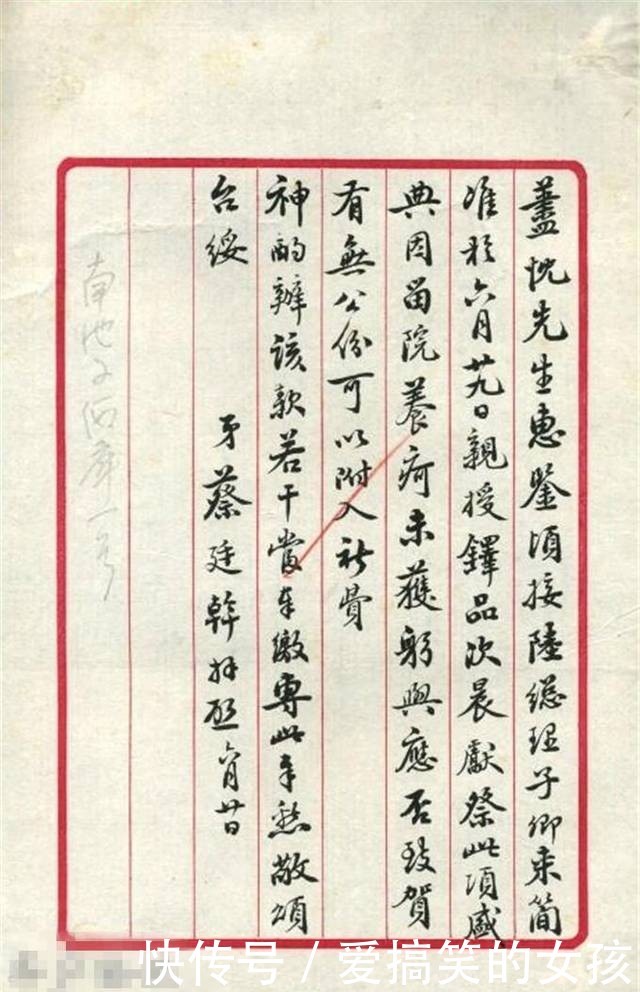 藎忱先生惠鑒頃接陸總理子卿来簡
准於六月廿九日親授鐸品次晨獻祭此項盛
典因留院養疴未獲躬與應否致賀
有無公份可以附入祈費
神酌辦該款若干當奉繳專此奉懇敬頌
台綏 弟蔡廷幹拜啟 六月廿日
南池子 庫一号
快传号/爱搞笑的女孩